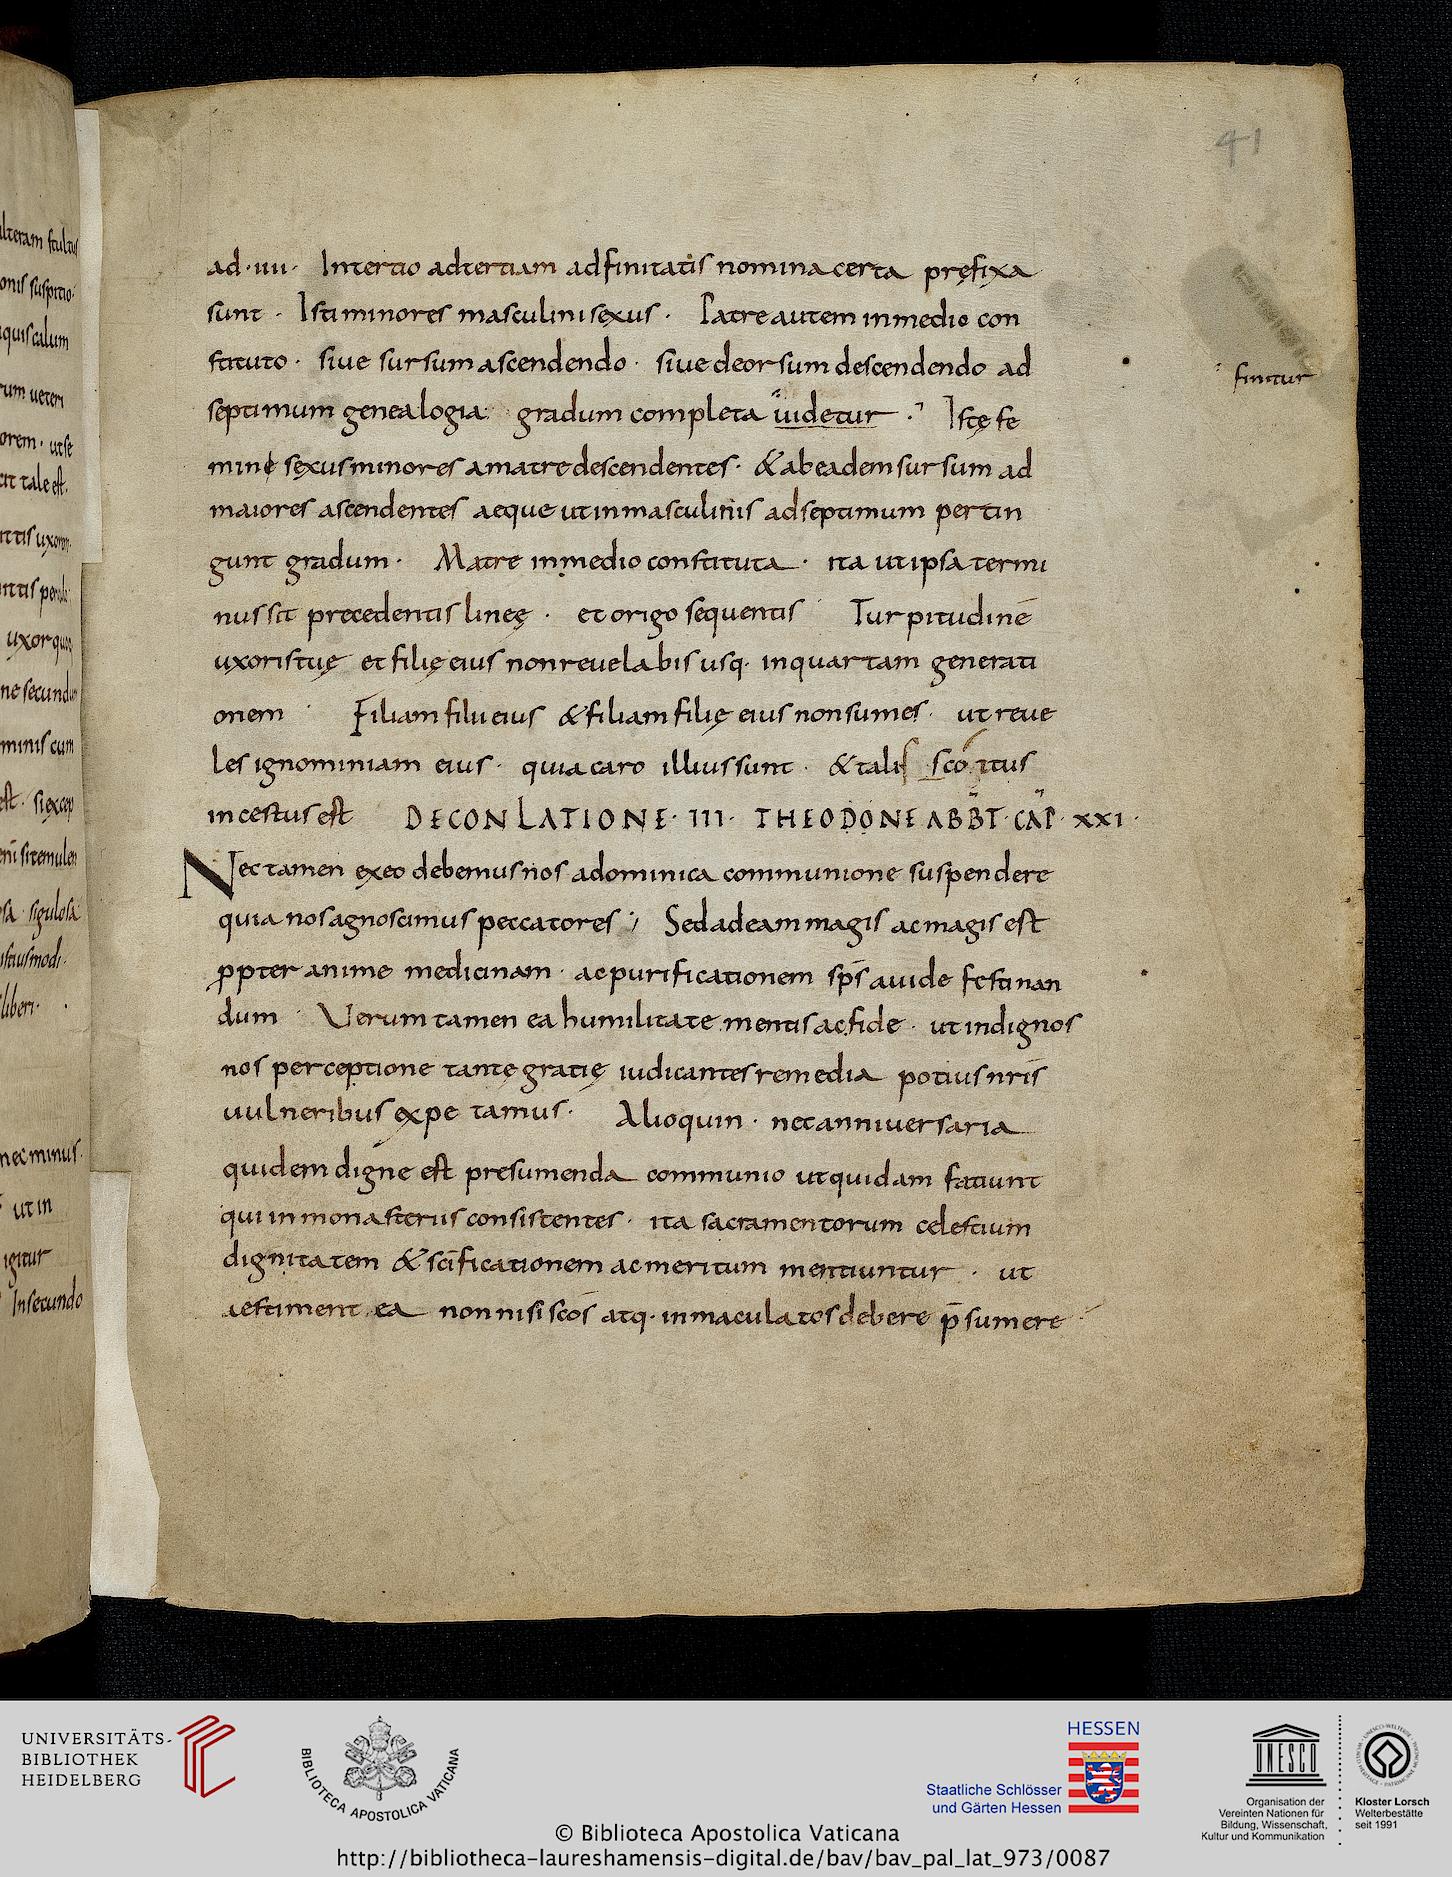 41
ad · IIII · Intertio adtertiam adfinitatis nomina certa pręfixa
sunt · Isti minores masculini sexus · Patre autem inmedio con
stituto · siue sursum ascendendo · siue deorsum descendendo ad
septimum genealogia gradum completa uidetur · Istę fe
finitur
minę sexus minores amatre descendentes · & ab eadem sursum ad
maiores ascendentes aeque ut in masculinis adseptimum pertin
gunt gradum · Matre inmedio constituta · ita ut ipsa termi
nus sit precedentis lineę · et origo sequentis Turpitudinē
uxoris tuę et filię eius non reuelabis usq · inquartam generati
onem Filiam filii eius & filiam filię eius non sumes · ut reue
les ignominiam eius · quia caro illius sunt · & talis coitus
incestus est DE CONLATIONE · III · THEODONE ABBT · CAP · XXI ·
Nec tamen ex eo debemus nos adominica communione suspendere
quia nos agnoscimus peccatores ; Sed ad eam magis ac magis est
ppter anime medicinam · ac purificationem sp̄s auide festinan
dum Uerum tamen ea humilitate mentis ac fide · ut indignos
nos perceptione tantę gratię iudicantes remedia potius nr̄is
uulneribus expetamus · Alioquin · nec anniuersaria
quidem digne est presumenda communio ut quidam faciunt
qui in monasteriis consistentes · ita sacramentorum celestium
dignitatem & sc̄ificationem ac meritum mentiuntur · ut
aestiment ea non nisi sc̄os atq · inmaculatos debere p̄sumere
alteram stultus
onis suspitio
quis calum
rum ueteri
orem · ut se
tale est ·
uxorem
uxor quoq
ne secundum
minis cum
est · si excep
si temulen
sigulosa
istiusmodi ·
liberi ·
nec minus ·
ut in
igitur
In secundo
UNIVERSITÄTS-
BIBLIOTHEK
HEIDELBERG
BIBLIOTECA APOSTOLICA VATICANA
HESSEN
Staatliche Schlösser
und Gärten Hessen
UNESCO
Organisation der
Vereinten Nationen für
Bildung, Wissenschaft,
Kultur und Kommunikation
Kloster Lorsch
Welterbestätte
seit 1991
© Biblioteca Apostolica Vaticana
http://bibliotheca-laureshamensis-digital.de/bav/bav_pal_lat_973/0087